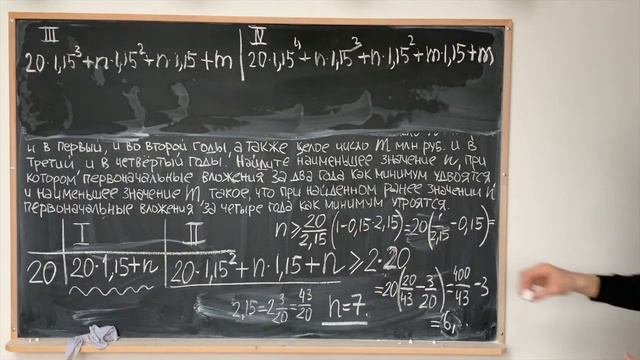 III
20·1,15³+n·1,15²+n·1,15+m
IV
20·1,15⁴+n·1,15³+n·1,15²+m·1,15+m
и в первый, и во второй годы, а также целое число m млн руб. и в
третий и в четвёртый годы. Найдите наименьшее значение n, при
котором первоначальные вложения за два года как минимум удвоятся
и наименьшее значение m, такое, что при найденном ранее значении n
первоначальные вложения за четыре года как минимум утроятся.
n ≥ 20/2,15 (1-0,15·2,15) = 20(1/2,15 - 0,15) =
I
II
20
20·1,15+n
20·1,15²+n·1,15+n ≥ 2·20
= 20(20/43 - 3/20) = 400/43 - 3
2,15 = 2 3/20 = 43/20
n=7.
= 6,...